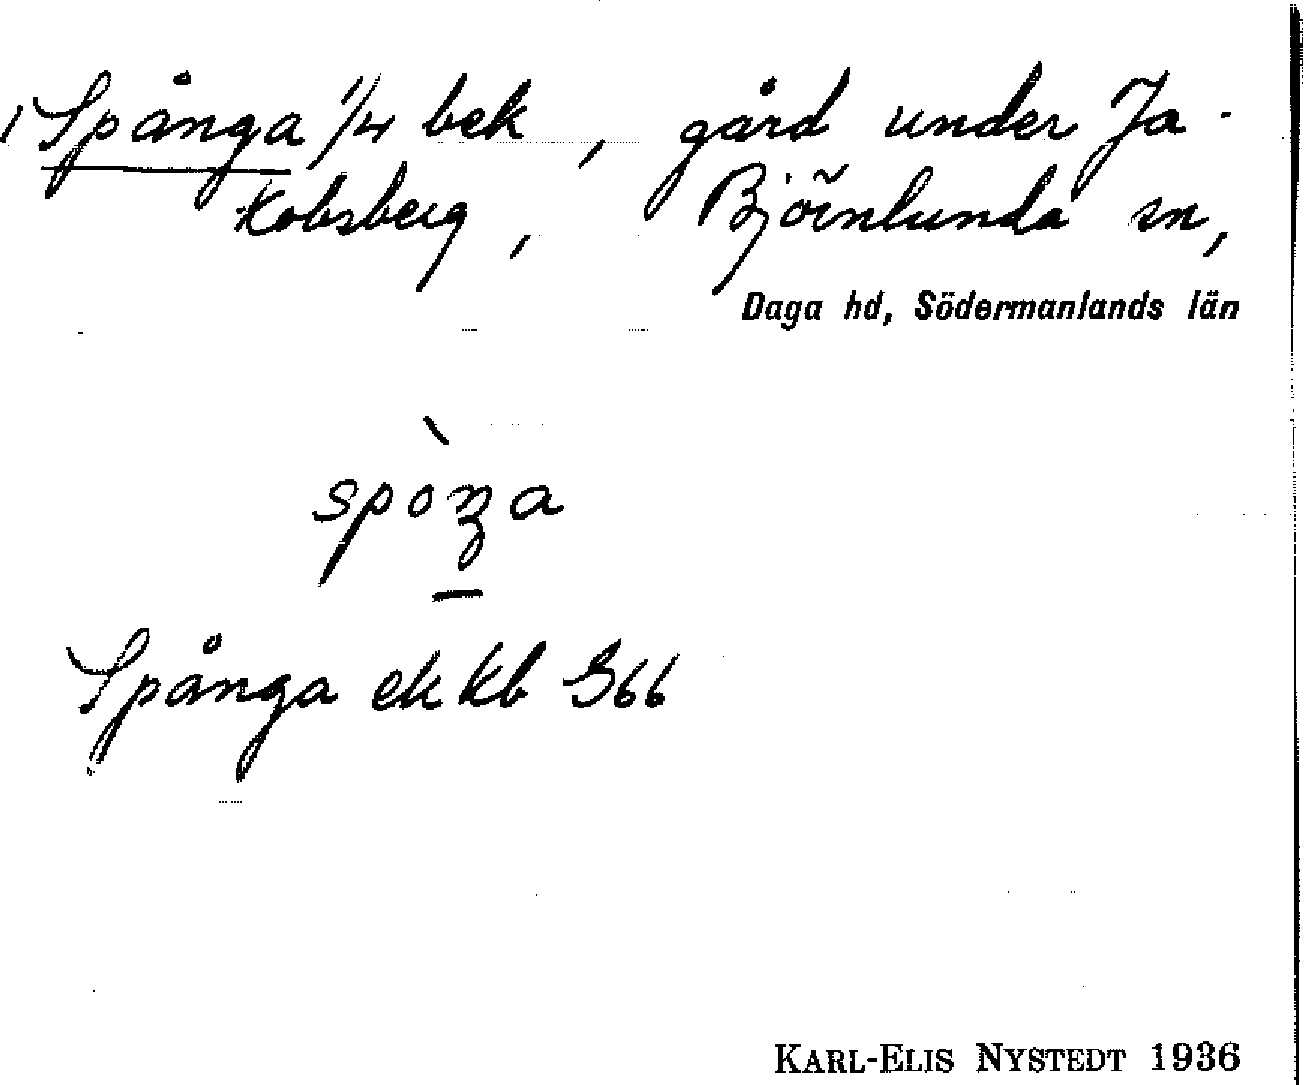 Spånga 1/4 bek, gård under Ja-
kobsberg, Björnlunda sn,
Daga hd, Södermanlands län
spòŋa
Spånga ek kb G66
KARL-ELIS NYSTEDT 1936